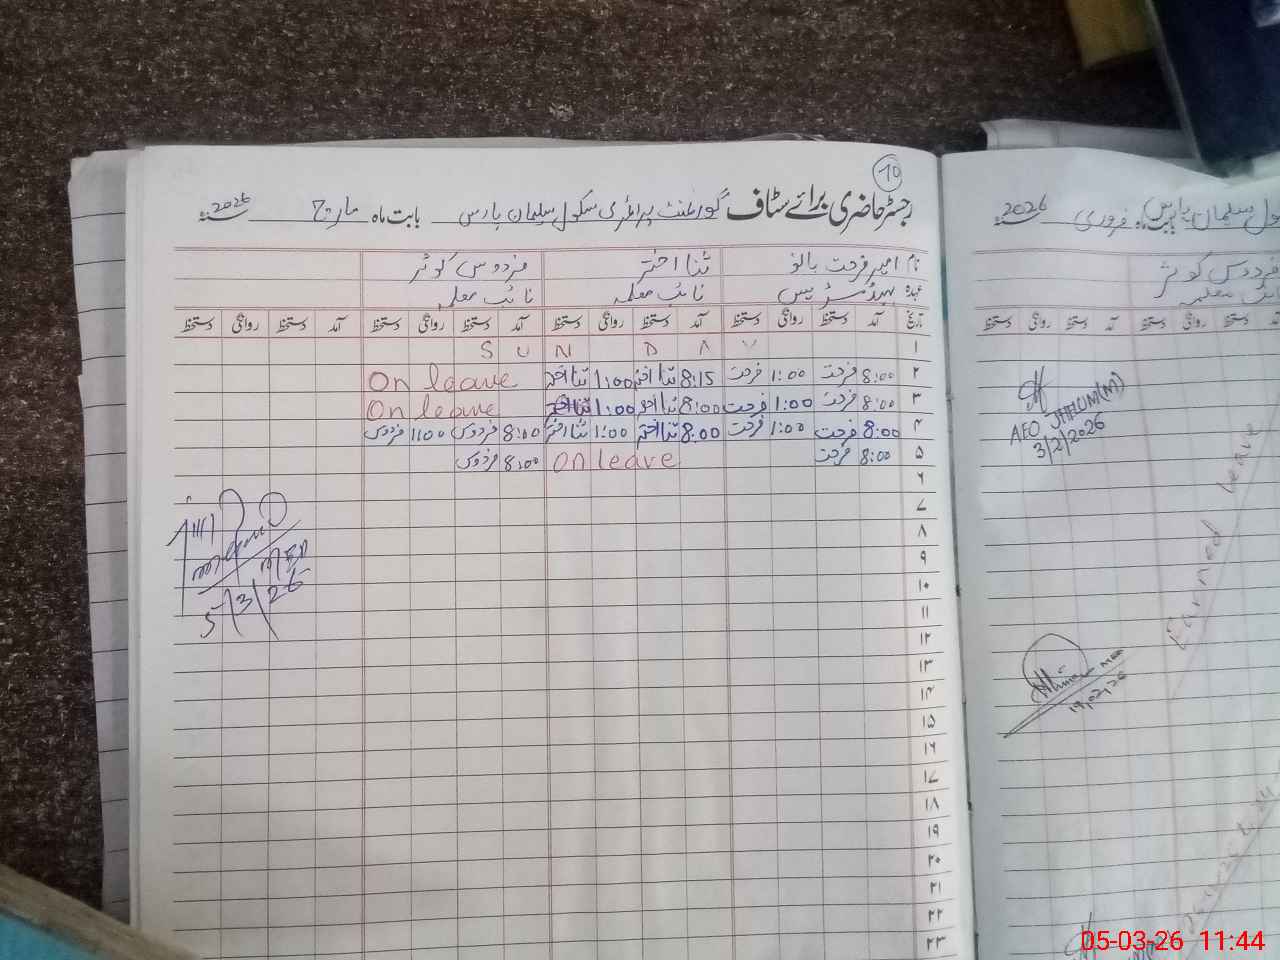 10
رجسٹر حاضری برائے سٹاف گورنمنٹ پرائمری سکول سلیمان پارس بابت ماہ مارچ 2026
نام امبر فرحت بانو ثنا اختر فردوس کوثر
عہدہ ہیڈمسٹریس نائب معلمہ نائب معلمہ
تاریخ آمد دستخط روانگی دستخط آمد دستخط روانگی دستخط آمد دستخط روانگی دستخط آمد دستخط روانگی دستخط
۱ S U N D A Y
۲ 8:00 فرحت 1:00 فرحت 8:15 ثنا اختر 1:00 ثنا اختر On leave
۳ 8:00 فرحت 1:00 فرحت 8:00 ثنا اختر 1:00 ثنا اختر On leave
۴ 8:00 فرحت 1:00 فرحت 8:00 ثنا اختر 1:00 ثنا اختر 8:00 فردوس 1:00 فردوس
۵ 8:00 فرحت On leave 8:00 فردوس
۶
۷
۸
۹
۱۰
۱۱
۱۲
۱۳
۱۴
۱۵
۱۶
۱۷
۱۸
۱۹
۲۰
۲۱
۲۲
۲۳
MED
5/3/26
سکول سلیمان پارس بابت ماہ فروری 2026
فردوس کوثر
نائب معلمہ
آمد دستخط روانگی دستخط
AEO JHELUM(M)
3/2/2026
Earned leave
19,02,26
05-03-26 11:44